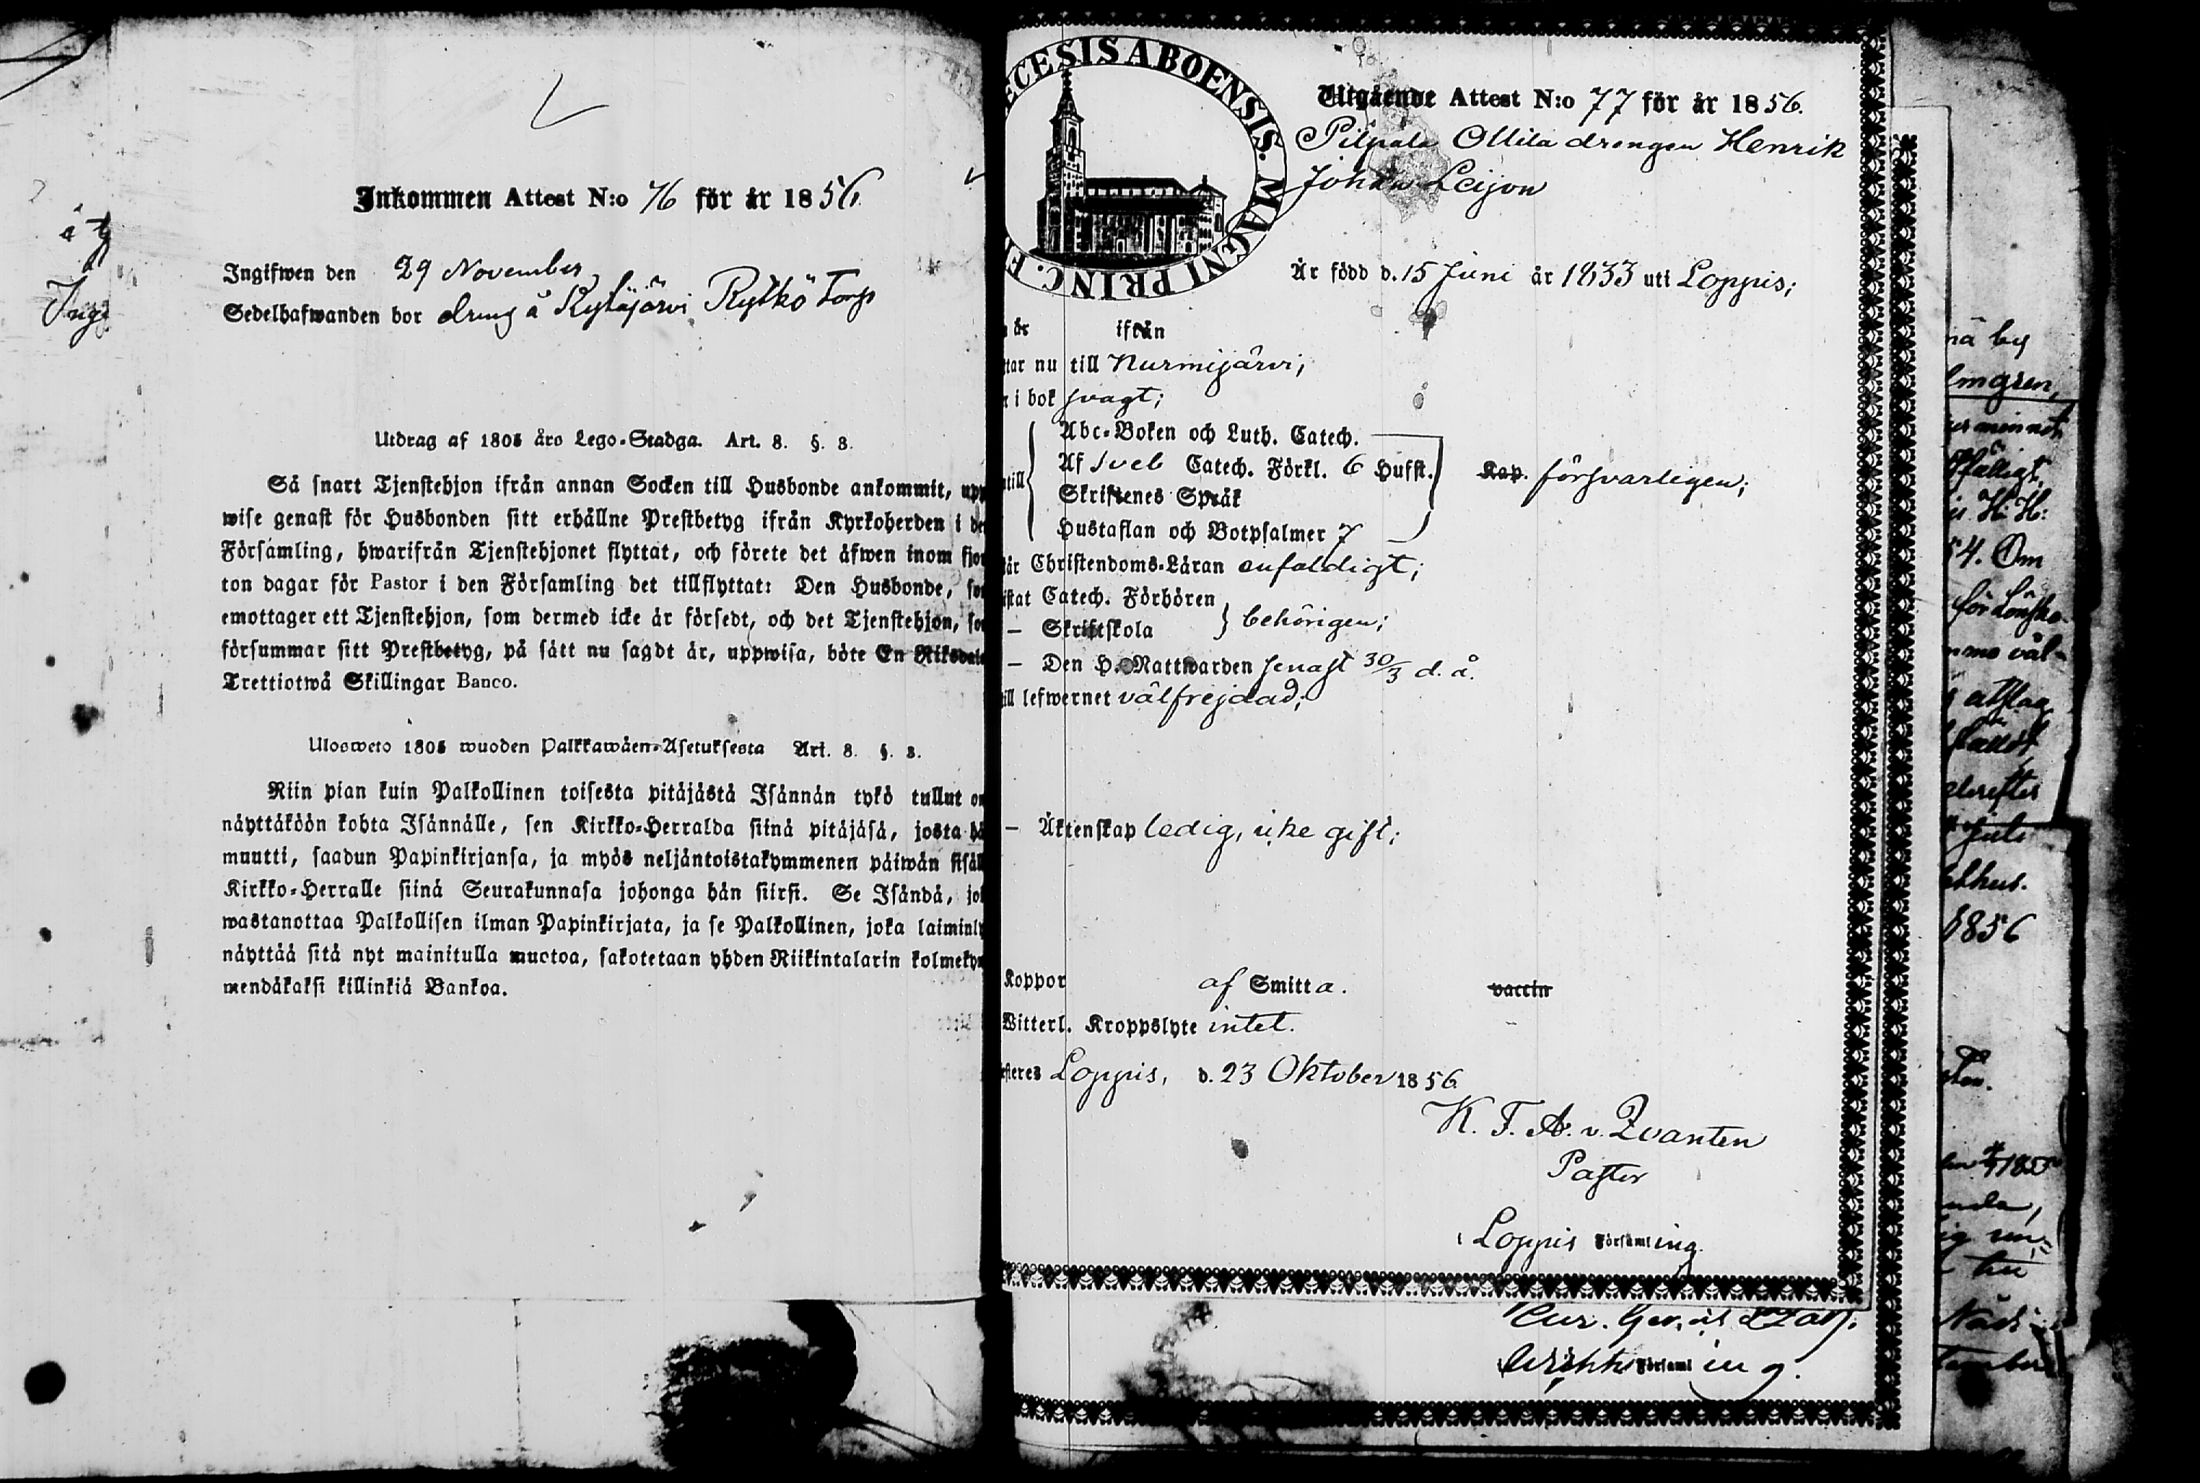 Inkommen Attest N:o 76 för år 1856
Ingifwen den 29 November
Sedelhafwanden bor dräng å Kytäjärvi Rytkö Torp
Utdrag af 1805 års Lego-Stadga. Art. 8. §. 8.
Så snart Tjenstehjon ifrån annan Socken till Husbonde ankommit, upp
wise genast för Husbonden sitt erhållne Prestbetyg ifrån Kyrkoherden i de
Församling, hwarifrån Tjenstehjonet flyttat, och förete det äfwen inom fjor
ton dagar för Pastor i den Församling det tillflyttat: Den Husbonde, so
emottager ett Tjenstehjon, som dermed icke är försedt, och det Tjenstehjon, so
försummar sitt Prestbetyg, på sätt nu sagdt är, uppwisa, böte En Riksdale
Trettiotwå Skillingar Banco.
Ulosweto 1805 wuoden Palkkawäen-Asetuksesta Art. 8. §. 8.
Niin pian kuin Palkollinen toisesta pitäjästä Isännän tykö tullut on
näyttäköön kohta Isännälle, sen Kirkko-Herralda siinä pitäjäsä, josta hä
muutti, saadun Papinkirjansa, ja myös neljäntoistakymmenen päiwän sisäl
Kirkko-Herralle siinä Seurakunnasa johonga hän siirsi. Se Isändä, jo
wastanottaa Palkollisen ilman Papinkirjata, ja se Palkollinen, joka laiminly
näyttää sitä nyt mainitulla muotoa, sakotetaan yhden Riikintalarin kolmekym
mendäkaksi killinkiä Bankoa.
ECESIS ABOENSIS. MAGNI PRINC. F
Utgående Attest N:o 77 för år 1856.
Pilpala Ollila drengen Henrik
Johan Leijon
Är född d. 15 Juni år 1833 uti Loppis;
år ifrån
ttar nu till Nurmijärvi;
r i bok svagt;
Abc-Boken och Luth. Catech.
Af Sveb Catech. Förkl. 6 Hufst.
till Skriftenes Språk
Kap. försvarligen;
Hustaflan och Botpsalmer 7
tår Christendoms-Läran enfaldigt;
istat Catech. Förhören
– Skriftskola behörigen;
– Den H. Nattwarden senast 30/3 d. å.
ill lefwernet välfrejdad;
– Äktenskap ledig, icke gift;
Koppor af Smitta. vaccin
Witterl. Kroppslyte intet.
steres Loppis, d. 23 Oktober 1856
K. F. A. v. Zvanten
Pastor
i Loppis Församling.
Församling.
nä by
lmgren,
54. Om
1856